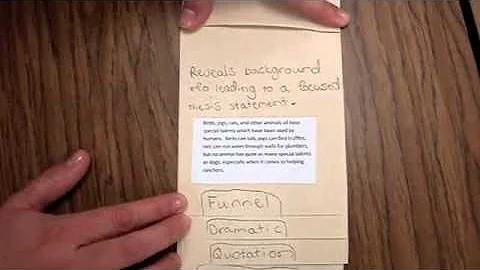 Reveals background
nfo leading to a focused
hesis statement.
Birds, pigs, rats, and other animals all have
special talents which have been used by
humans. Birds can talk, pigs can find truffles,
rats can run wires through walls for plumbers,
but no animal has quite as many special talents
as dogs, especially when it comes to helping
ranchers.
Funnel
Dramatic
Quotation